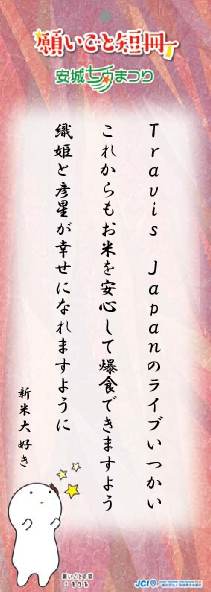 願いごと短冊
安城七夕まつり
Travis Japanのライブいつかい
これからもお米を安心して爆食できますよう
織姫と彦星が幸せになれますように
新米大好き
願いごと短冊
JCI